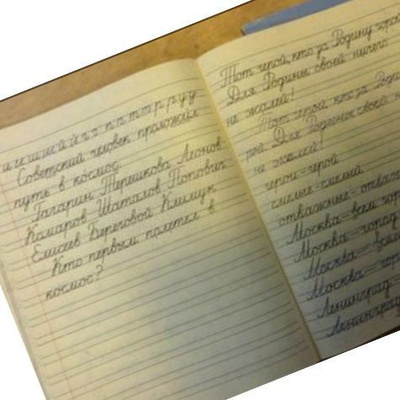 и и ш ш й й п п т т р р у у
Советский человек проложил
путь в космос.
Гагарин Терешкова Леонов
Комаров Шаталов Попович
Елисеев Береговой Климук
Кто первым полетел в
космос?
Тот герой, кто за Родину горой
Для Родины своей ничего
не жалей!
Тот герой, кто за Роди
рой. Для Родины своей н
не жалей!
герои-герой
смелые-смелый
отважные-отваж
Москва-всем гор
Москва-город
Москва-всем
Москва-гор
Ленинград
Ленинград